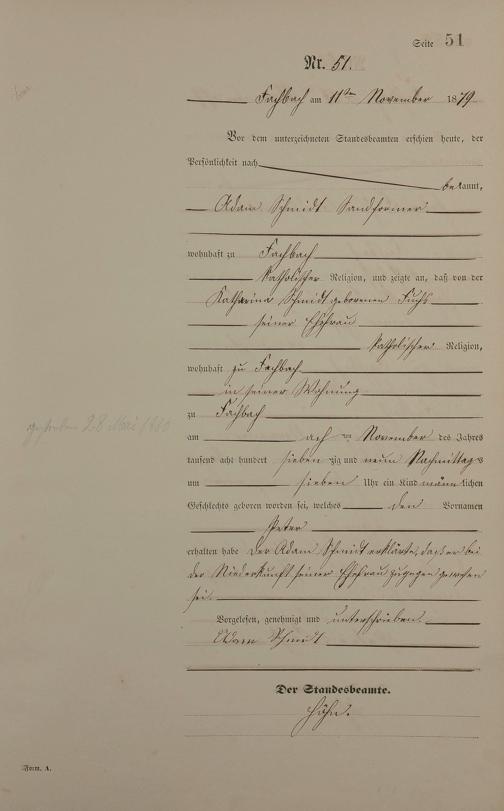 Seite 51
Nr. 51.
Fachbach am 11ten November 1879
Vor dem unterzeichneten Standesbeamten erschien heute, der
Persönlichkeit nach
bekannt,
Adam Schmidt Sandformer
wohnhaft zu Fachbach
katholischer Religion, und zeigte an, daß von der
Katharina Schmidt geborenen Fuchs
seiner Ehefrau
katholischer Religion,
wohnhaft zu Fachbach
in seiner Wohnung
zu Fachbach
gestorben 28 Mai
am November des Jahres
tausend acht hundert siebenzig und neun Nachmittags
um sieben Uhr ein Kind männlichen
Geschlechts geboren worden sei, welches den Vornamen
Peter
erhalten habe Der Adam Schmidt erklärte, daß er bei
der Niederkunft seiner Ehefrau zugegen gewesen
sei.
Vorgelesen, genehmigt und unterschrieben
Adam Schmidt
Der Standesbeamte.
Form. A.